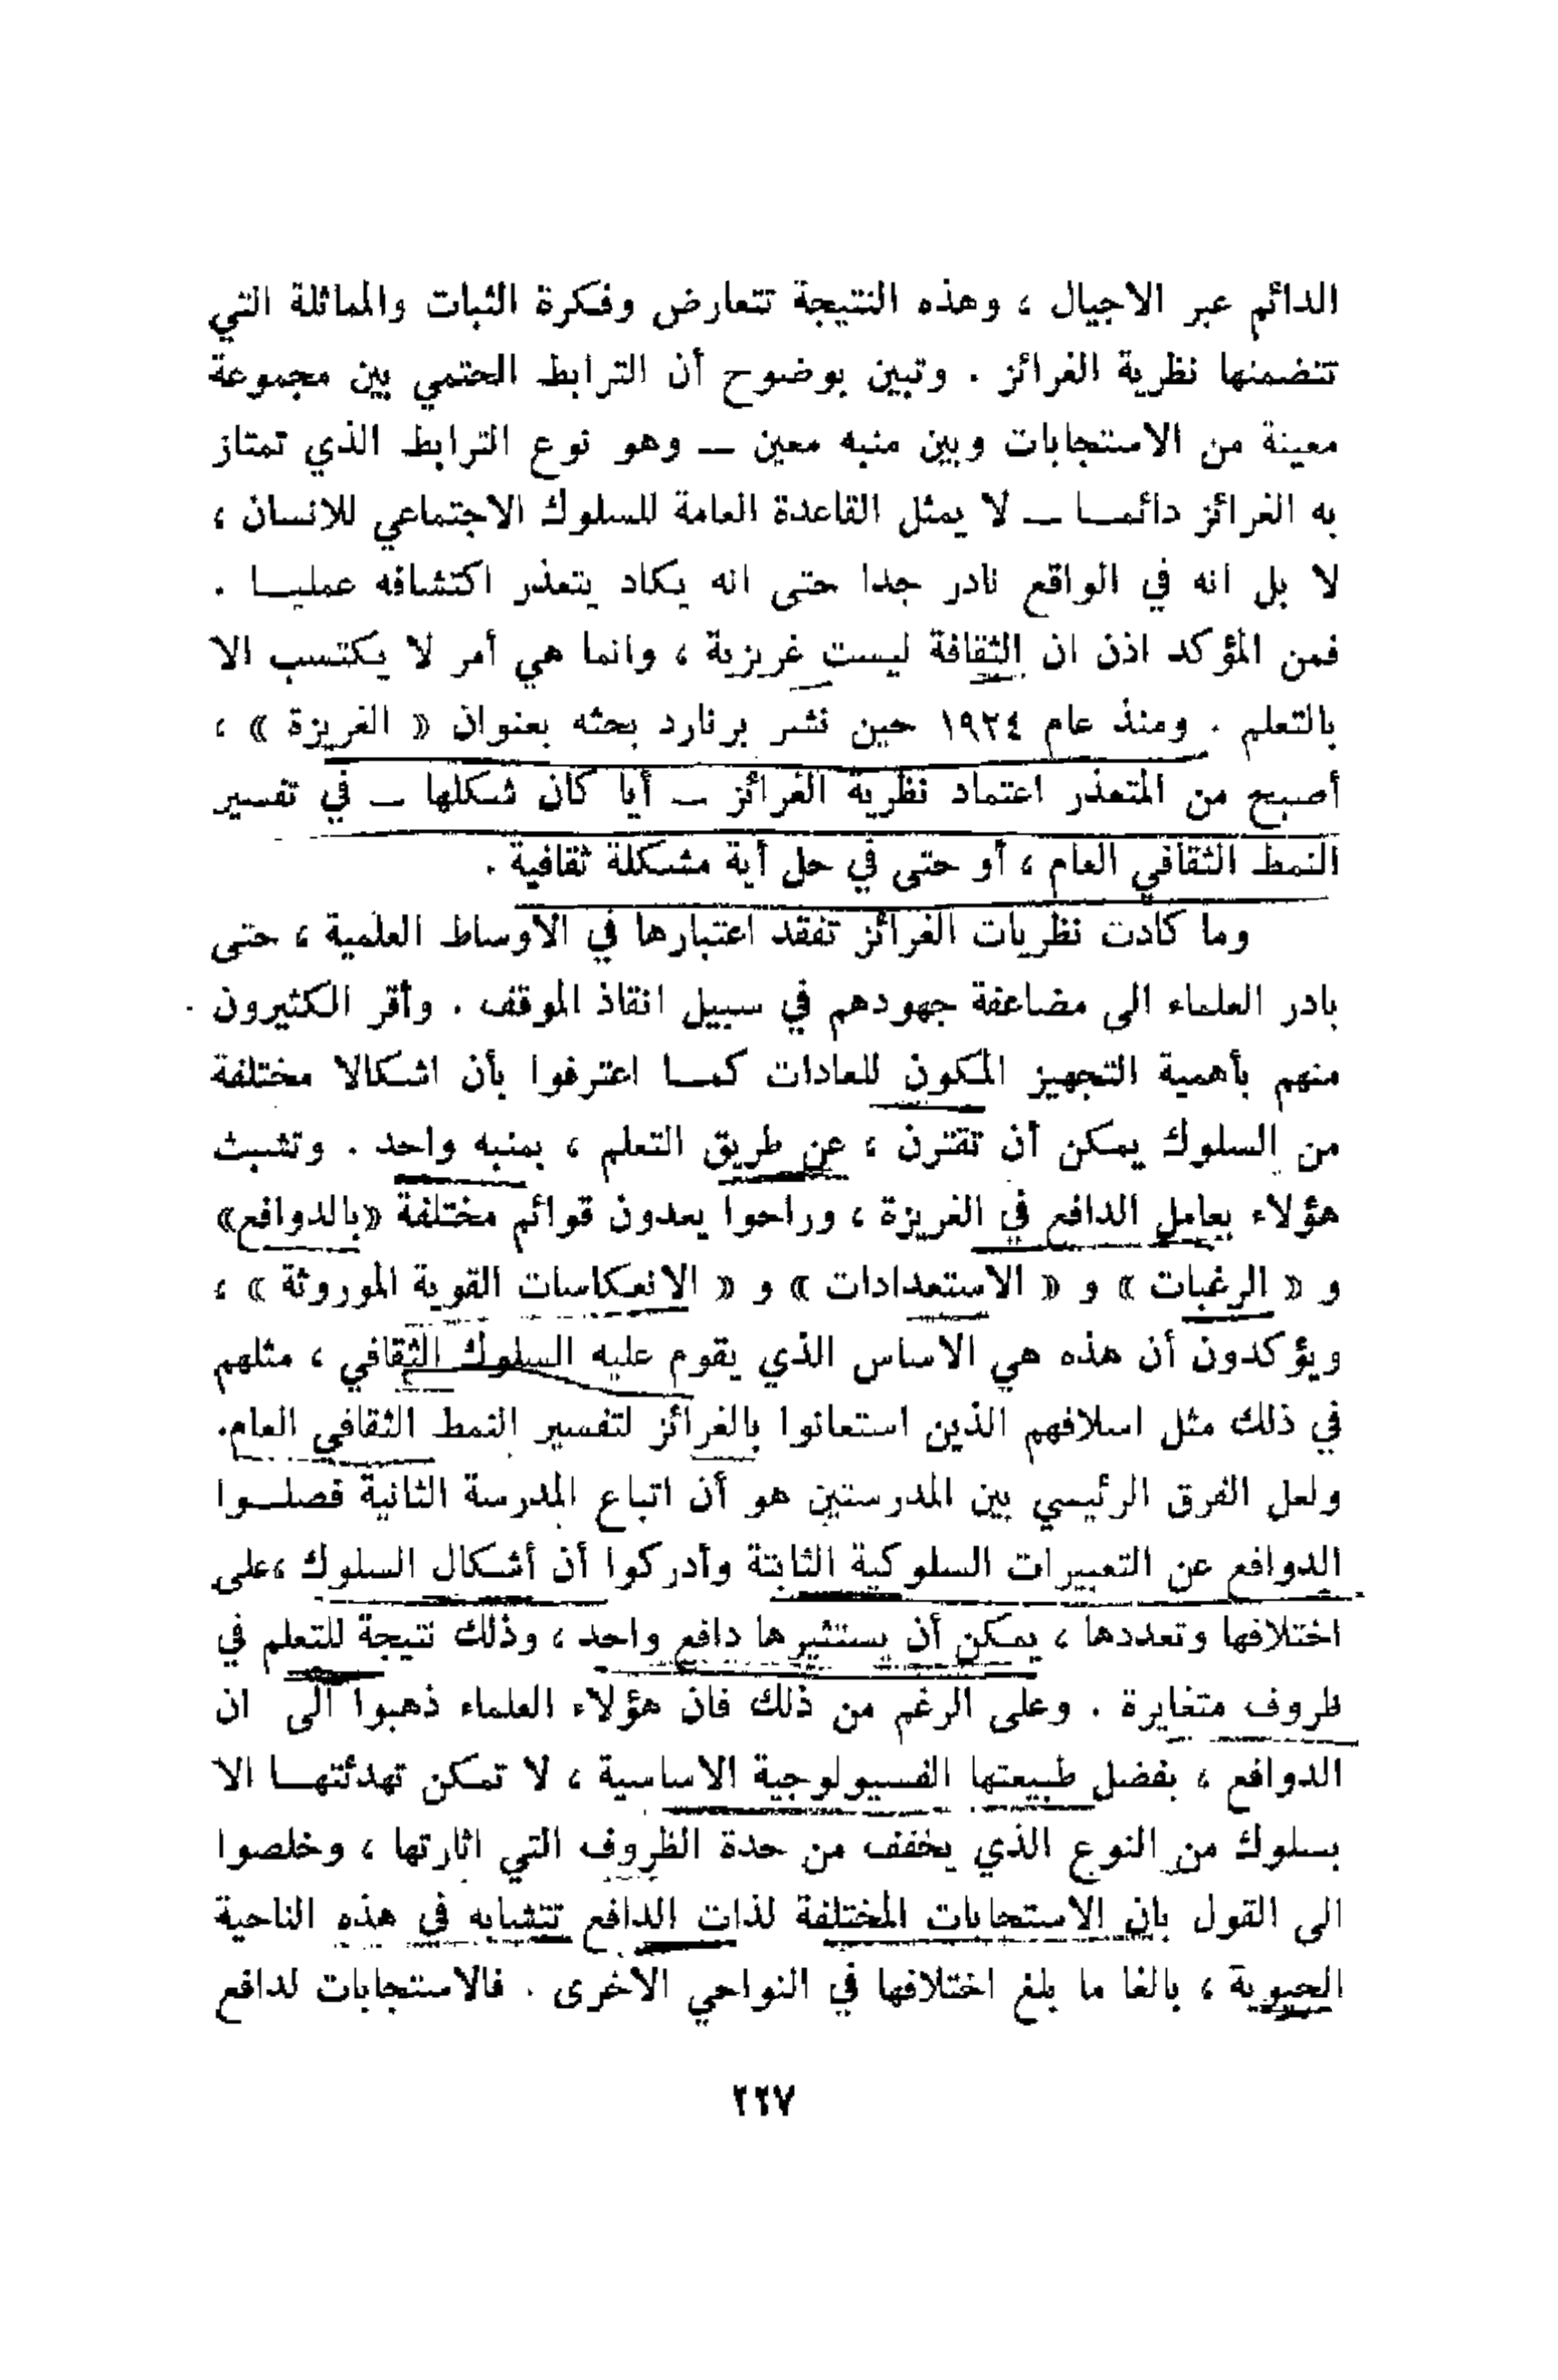 الدائم عبر الاجيال ، وهذه النتيجة تتعارض وفكرة الثبات والمماثلة التي
تتضمنها نظرية الغرائز . وتبين بوضوح أن الترابط الحتمي بين مجموعة
معينة من الاستجابات وبين منبه معين — وهو نوع الترابط الذي تمتاز
به الغرائز دائمـا — لا يمثل القاعدة العامة للسلوك الاجتماعي للانسان ،
لا بل انه في الواقع نادر جدا حتى انه يكاد يتعذر اكتشافه عمليـا .
فمن المؤكد اذن ان الثقافة ليست غريزية ، وانما هي أمر لا يكتسب الا
بالتعلم . ومنذ عام ١٩٢٤ حين نشر برنارد بحثه بعنوان « الغريزة » ،
أصبح من المتعذر اعتماد نظرية الغرائز — أيا كان شكلها — في تفسير
النمط الثقافي العام ، أو حتى في حل أية مشكلة ثقافية .
وما كادت نظريات الغرائز تفقد اعتبارها في الاوساط العلمية ، حتى
بادر العلماء الى مضاعفة جهودهم في سبيل انقاذ الموقف . وأقر الكثيرون
منهم بأهمية التجهيز المكون للعادات كمـا اعترفوا بأن اشكالا مختلفة
من السلوك يمكن أن تقترن ، عن طريق التعلم ، بمنبه واحد . وتشبث
هؤلاء بعامل الدافع في الغريزة ، وراحوا يعدون قوائم مختلفة «بالدوافع»
و « الرغبات » و « الاستعدادات » و « الانعكاسات القوية الموروثة » ،
ويؤكدون أن هذه هي الاساس الذي يقوم عليه السلوك الثقافي ، مثلهم
في ذلك مثل اسلافهم الذين استعانوا بالغرائز لتفسير النمط الثقافي العام.
ولعل الفرق الرئيسي بين المدرستين هو أن اتباع المدرسة الثانية فصلـوا
الدوافع عن التعبيرات السلوكية الثابتة وأدركوا أن أشكال السلوك ،على
اختلافها وتعددها ، يمكن أن يستثيرها دافع واحد ، وذلك نتيجة للتعلم في
ظروف متغايرة . وعلى الرغم من ذلك فان هؤلاء العلماء ذهبوا الى ان
الدوافع ، بفضل طبيعتها الفسيولوجية الاساسية ، لا تمكن تهدئتهـا الا
بسلوك من النوع الذي يخفف من حدة الظروف التي اثارتها ، وخلصوا
الى القول بان الاستجابات المختلفة لذات الدافع تتشابه في هذه الناحية
الحيوية ، بالغا ما بلغ اختلافها في النواحي الاخرى . فالاستجابات لدافع
٢٢٧